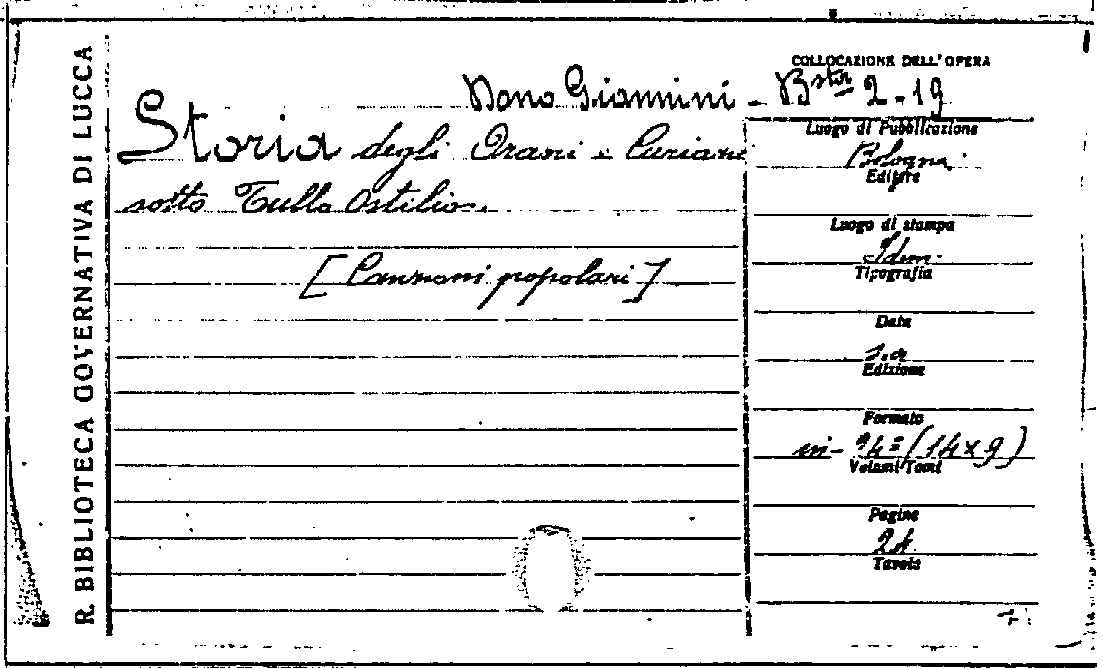 R. BIBLIOTECA GOVERNATIVA DI LUCCA
COLLOCAZIONE DELL'OPERA
Dono Giannini - B.sta 2-19
Storia degli Orazi e Curiazi
sotto Tullo Ostilio.
[Canzoni popolari]
Luogo di Pubblicazione
Bologna.
Editore
Luogo di stampa
Idem.
Tipografia
Data
s.a
Edizione
Formato
in-24° (14x9)
Volumi/Tomi
Pagine
24
Tavole